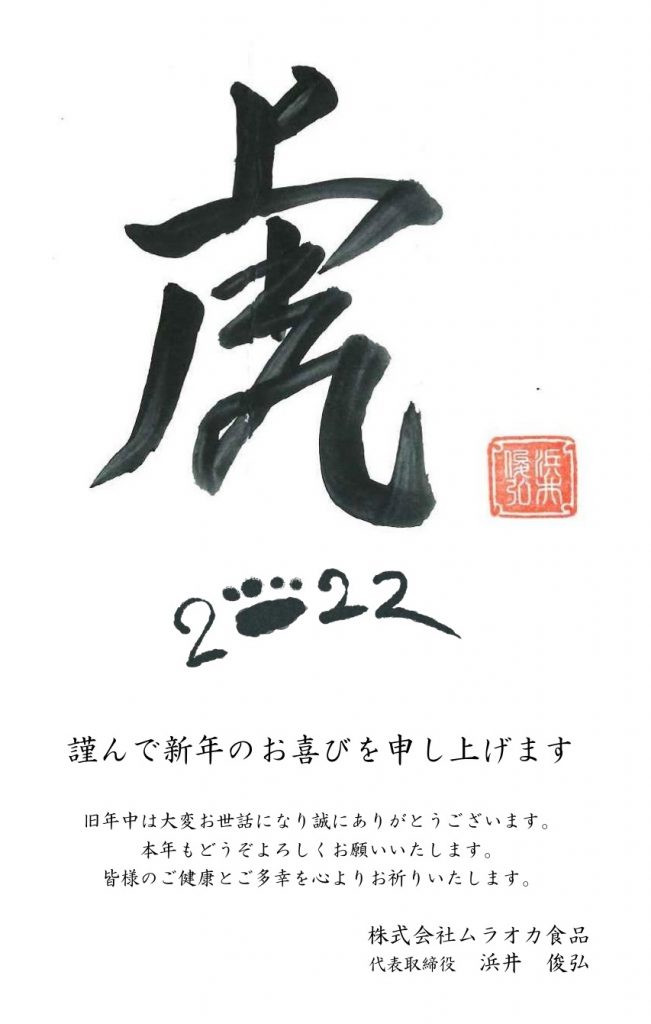 虎
浜井
俊弘
2022
謹んで新年のお喜びを申し上げます
旧年中は大変お世話になり誠にありがとうございます。
本年もどうぞよろしくお願いいたします。
皆様のご健康とご多幸を心よりお祈りいたします。
株式会社ムラオカ食品
代表取締役　浜井　俊弘